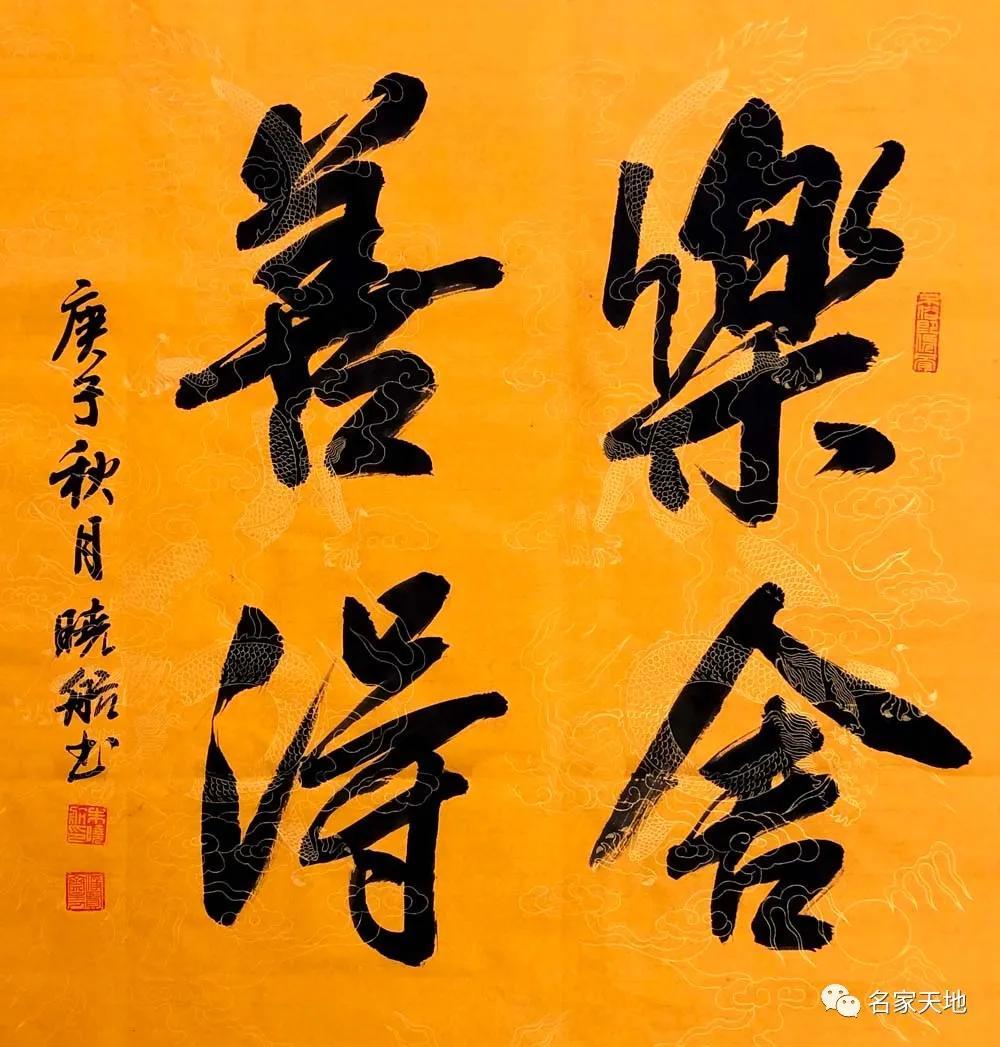 樂舍
善得
庚子秋月曉船书
名家天地